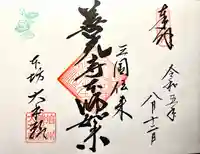 奉拝
三国伝来
善光寺如来
令和五年
八月十二日
本坊 大本願